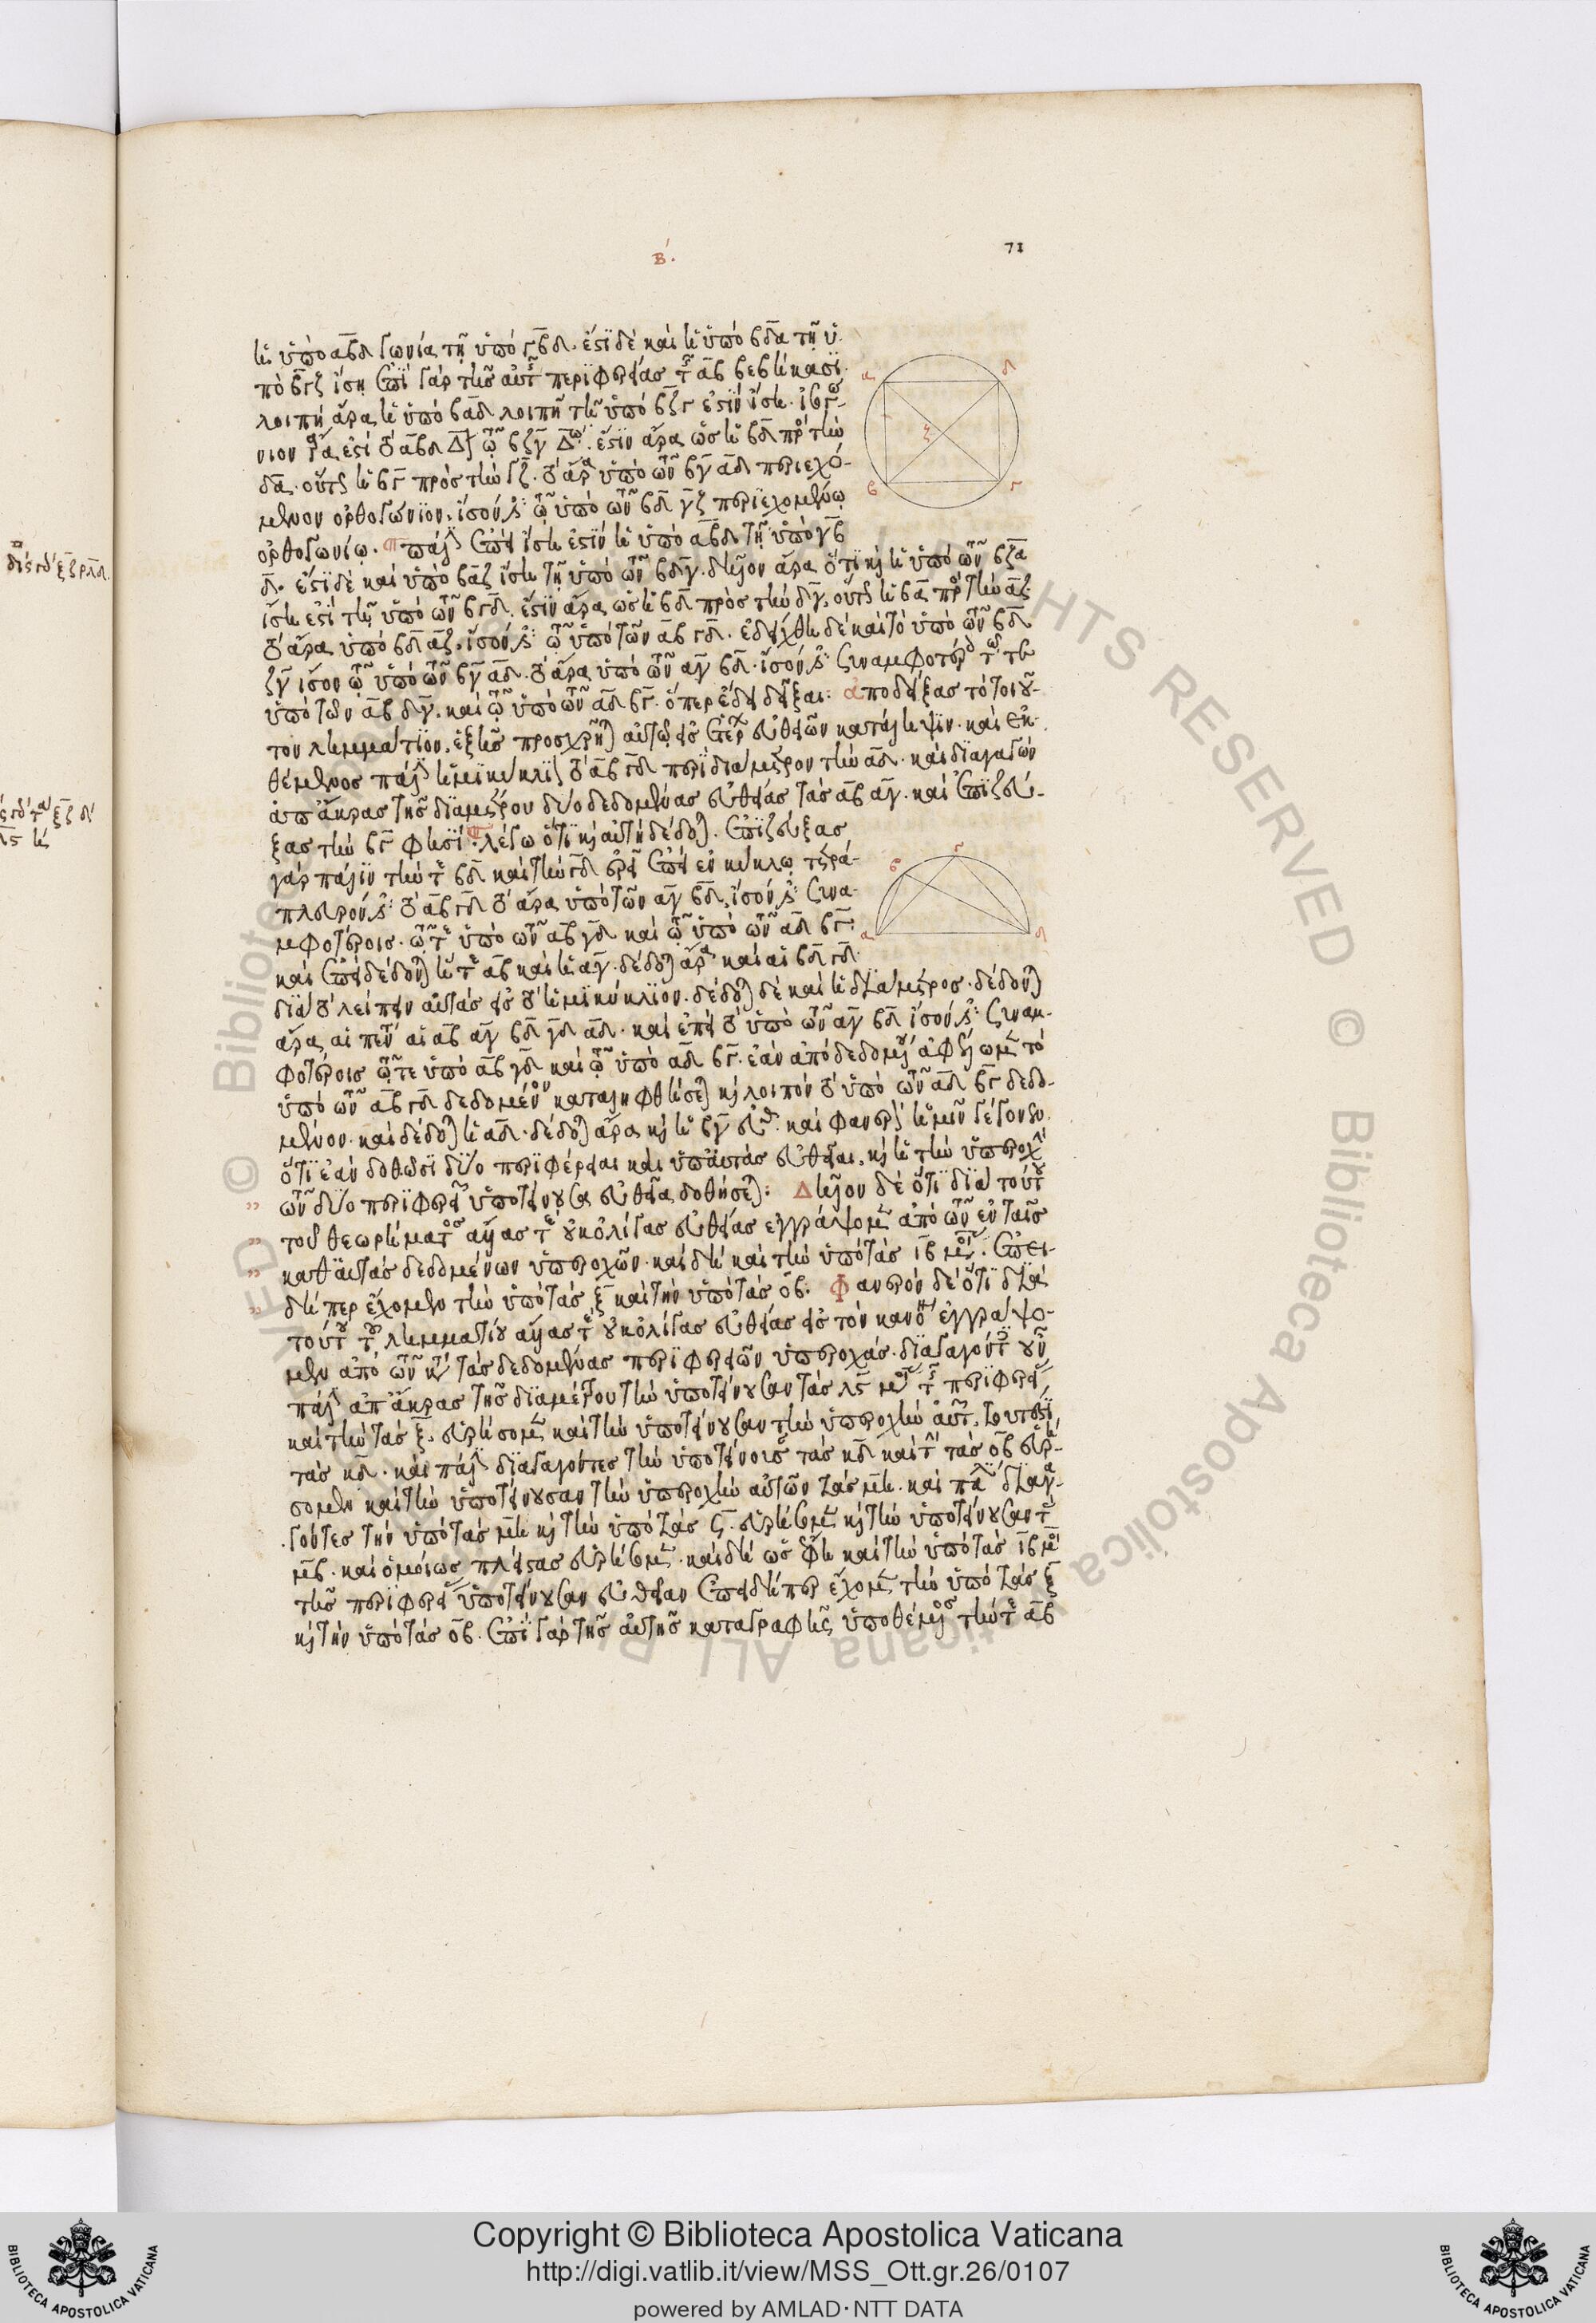 β΄.
71
ἡ ὑπὸ αβδ γωνία τῇ ὑπὸ γβδ. ἔστι δὲ καὶ ἡ ὑπὸ βδα τῇ ὑ
πὸ βγζ ἴση ἐπὶ γὰρ τῆς αὐτῆς περιφερείας τῆς αβ βεβήκασι.
λοιπὴ ἄρα ἡ ὑπὸ βαδ λοιπῇ τῇ ὑπὸ βζγ ἐστὶν ἴση. ἰσογώ
νιον ἄρα ἐστὶ τὸ αβδ Δ τῷ βζγ Δω. ἔστιν ἄρα ὡς ἡ βδ πρὸς τὴν
δα. οὕτως ἡ βγ πρὸς τὴν γζ. τὸ ἄρα ὑπὸ τῶν βγ αδ περιεχό
μενον ὀρθογώνιον, ἴσον ἐστὶ τῷ ὑπὸ τῶν βδ γζ περιεχομένῳ
ὀρθογωνίῳ. πάλιν ἐπεὶ ἴση ἐστὶν ἡ ὑπὸ αβδ τῇ ὑπὸ γβ
δ. ἔστι δὲ καὶ ὑπὸ βαζ ἴση τῇ ὑπὸ τῶν βδγ. δῆλον ἄρα ὅτι καὶ ἡ ὑπὸ τῶν βζα
ἴση ἐστὶ τῇ ὑπὸ τῶν βγδ. ἔστιν ἄρα ὡς ἡ βδ πρὸς τὴν δγ, οὕτως ἡ βα πρὸς τὴν αζ.
τὸ ἄρα ὑπὸ βδ αζ, ἴσον ἐστὶ τῷ ὑπὸ τῶν αβ γδ. ἐδείχθη δὲ καὶ τὸ ὑπὸ τῶν βδ
ζγ ἴσον τῷ ὑπὸ τῶν βγ αδ. τὸ ἄρα ὑπὸ τῶν αγ βδ. ἴσον ἐστὶ συναμφοτέρῳ τῷ τε
ὑπὸ τῶν αβ δγ. καὶ τῷ ὑπὸ τῶν αδ βγ. ὅπερ ἔδει δεῖξαι: ἀποδείξας τὸ τοιοῦ
τον λημμάτιον. ἑξῆς προσχρῆται αὐτῷ εἰς ἑτέρων εὐθειῶν κατάληψιν. καὶ ἐκ
θέμενος πάλιν ἡμικύκλιον τὸ αβγδ περὶ διάμετρον τὴν αδ. καὶ διαγαγὼν
ἀπ' ἄκρας τῆς διαμέτρου δύο δεδομένας εὐθείας τὰς αβ αγ. καὶ ἐπιζεύ
ξας τὴν βγ φησί. λέγω ὅτι καὶ αὐτὴ δέδοται. ἐπιζεύξας
γὰρ πάλιν τήν τε βδ καὶ τὴν γδ ἐρεῖ ἐπεὶ ἐν κύκλῳ τετρά
πλευρόν ἐστι τὸ αβγδ τὸ ἄρα ὑπὸ τῶν αγ βδ, ἴσον ἐστὶ συνα
μφοτέροις. τῷ τε ὑπὸ τῶν αβ γδ καὶ τῷ ὑπὸ τῶν αδ βγ.
καὶ ἐπεὶ δέδοται ἥ τε αβ καὶ ἡ αγ. δέδοται ἄρα καὶ αἱ βδ γδ
διὰ τὸ λείπειν αὐτὰς εἰς τὸ ἡμικύκλιον. δέδοται δὲ καὶ ἡ διάμετρος. δέδονται
ἄρα αἱ πέντε αἱ αβ αγ βδ γδ αδ. καὶ ἐπεὶ τὸ ὑπὸ τῶν αγ βδ ἴσον ἐστὶ συναμ
φοτέροις τῷ τε ὑπὸ αβ γδ καὶ τῷ ὑπὸ αδ βγ. ἐὰν ἀπὸ δεδομένου ἀφέλωμεν τὸ
ὑπὸ τῶν αβ γδ δεδομένον καταληφθήσεται καὶ λοιπὸν τὸ ὑπὸ τῶν αδ βγ δεδο
μένον. καὶ δέδοται ἡ αδ. δέδοται ἄρα καὶ ἡ βγ εὐθεῖα. καὶ φανερὸν ἡμῖν γέγονεν.
ὅτι ἐὰν δοθῶσι δύο περιφέρειαι καὶ ὑπ' αὐτὰς εὐθεῖαι, καὶ ἡ τὴν ὑπεροχὴν
τῶν δύο περιφερειῶν ὑποτείνουσα εὐθεῖα δοθήσεται: Δῆλον δὲ ὅτι διὰ τούτου
τοῦ θεωρήματος ἄλλας τε οὐκ ὀλίγας εὐθείας ἐγγράψομεν ἀπὸ τῶν ἐν ταῖς
καθ' αὑτὰς δεδομένων ὑπεροχῶν. καὶ δὴ καὶ τὴν ὑπὸ τὰς ιβ μοίρας. ἐπει
δήπερ ἔχομεν τὴν ὑπὸ τὰς ξ καὶ τὴν ὑπὸ τὰς οβ. Φανερὸν δὲ ὅτι διὰ
τούτου τοῦ λημματίου ἄλλας τε οὐκ ὀλίγας εὐθείας εἰς τὸν κανόνα ἐγγράψο
μεν ἀπὸ τῶν κατὰ τὰς δεδομένας περιφερειῶν ὑπεροχάς. διαγαγόντες οὖν
πάλιν ἀπ' ἄκρας τῆς διαμέτρου τὴν ὑποτείνουσαν τὰς λς μοίρας τῆς περιφερείας,
καὶ τὴν τὰς ξ. εὑρήσομεν καὶ τὴν ὑποτείνουσαν τὴν ὑπεροχὴν αὐτῶν. τουτέστι
τὰς κδ. καὶ πάλιν διαγαγόντες τὴν ὑποτείνουσαν τὰς κδ καὶ τὴν τὰς οβ εὑρή
σομεν καὶ τὴν ὑποτείνουσαν τὴν ὑπεροχὴν αὐτῶν τὰς μη. καὶ πάλιν διαγα
γόντες τὴν ὑπὸ τὰς μη καὶ τὴν ὑπὸ τὰς ϛ. εὑρήσομεν καὶ τὴν ὑποτείνουσαν τὰς
μβ. καὶ ὁμοίως πλείστας εὑρήσομεν. καὶ δὴ ὡς ἔφη καὶ τὴν ὑπὸ τὰς ιβ μοίρας
τῆς περιφερείας ὑποτείνουσαν εὐθεῖαν ἐπειδήπερ ἔχομεν τὴν ὑπὸ τὰς ξ
καὶ τὴν ὑπὸ τὰς οβ. ἐπὶ γὰρ τῆς αὐτῆς καταγραφῆς ὑποθέμενος τήν τε αβ
α δ ζ β γ
α β γ δ
© Biblioteca Apostolica Vaticana ALL RIGHTS RESERVED
Copyright © Biblioteca Apostolica Vaticana
http://digi.vatlib.it/view/MSS_Ott.gr.26/0107
powered by AMLAD·NTT DATA
BIBLIOTECA APOSTOLICA VATICANA
BIBLIOTECA APOSTOLICA VATICANA